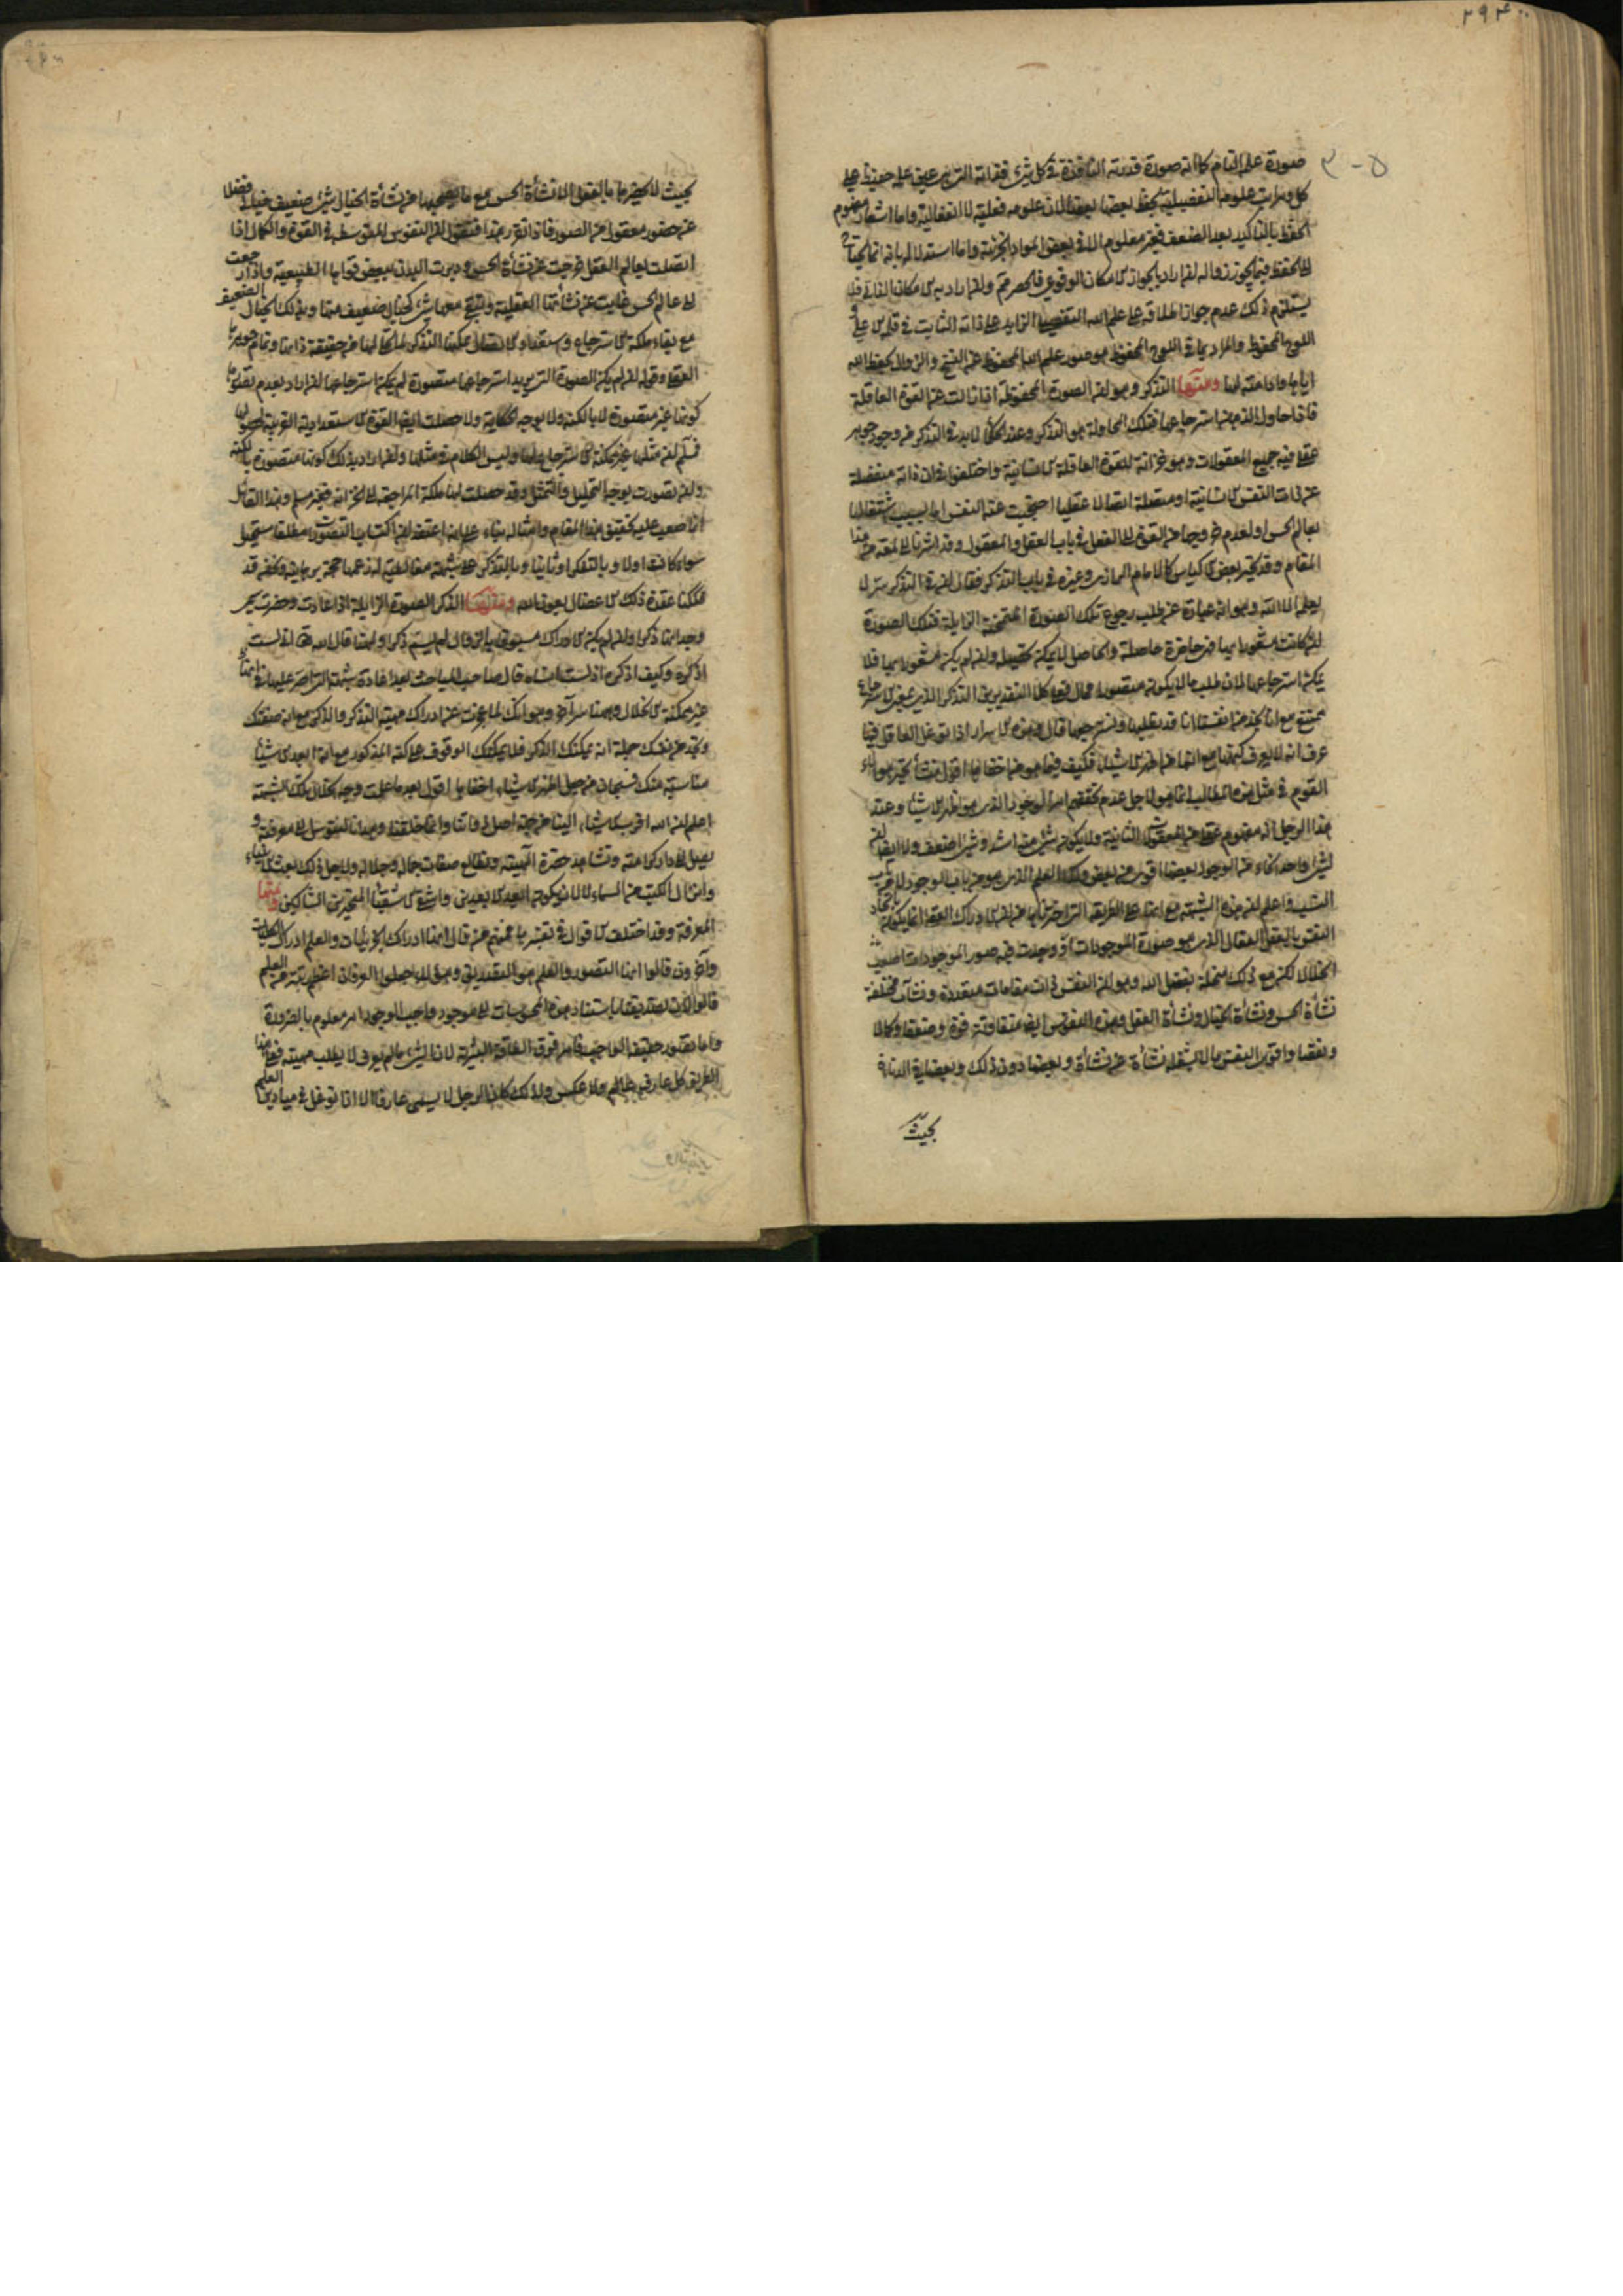 ۲۹۴۰۰
۳-۵
صورة علمه التام كما انه صورة قدرته النافذة في كل شئ فقدرته التي هي عين علمه حفيظ على
كل مراتب علومه التفصيلية يحفظ بعضها بعضا لان علومه فعلية لا انفعالية واما اشعار مفهوم
الحفظ بالتأكيد بعد الضعف فغير معلوم الا في بعض المواد الجزئية واما استدلاله بانه انما يحتاج
الى الحفظ فيما يجوز زواله ان اراد بالجواز الامكان الوقوعي فالحصر ممنوع وان اراد به الامكان الذاتي فلا
يستلزم ذلك عدم جواز اطلاقه على علم الله التفصيلي الزايد على ذاته الثابت في قلم الاعلى و
اللوح المحفوظ والمراد بما في اللوح المحفوظ هو صور علم الله المحفوظ عن النسخ والزوال بحفظ الله
اياها وادامته لها ومنها التذكر وهو ان الصورة المحفوظة اذا زالت عن القوة العاقلة
فاذا حاول الذهن استرجاعها فتلك المحاولة هو التذكر وعند الحكماء لا بد في التذكر من وجود جوهر
عقلي فيه جميع المعقولات وهو خزانة للقوة العاقلة الانسانية واختلفوا في ان ذاته منفصلة
عن ذات النفس الانسانية او متصلة اتصالا عقليا احتجبت عنه النفس اما بسبب اشتغالها
بعالم الحس او لعدم خروجها من القوة الى الفعل في باب العقل والمعقول وقد اشرنا الى لمعة من هذا
المقام وقد تحير بعض الاكياس كالامام الرازي وغيره في باب التذكر فقال ان في التذكر سرا لا
يعلمه الا الله وهو انه عبارة عن طلب رجوع تلك الصورة الممحية الزايلة فتلك الصورة
ان كانت مشعورا بها فهي حاضرة حاصلة والحاصل لا يمكن تحصيله وان لم يكن مشعورا بها فلا
يمكن استرجاعها لان طلب ما لا يكون متصورا محال فعلى كلا التقديرين التذكر الذي بمعنى الاسترجاع
ممتنع مع انا نجد من انفسنا انا قد نطلبها ونسترجعها قال وهذه الاسرار اذا توغل العاقل فيها
عرف انه لا يعرف كنهها مع انها من اظهر الاشياء فكيف فيما هو من اخفاها اقول منشأ تحير هؤلاء
القوم في مثل هذه المطالب انما هو لاجل عدم تحققهم امر الوجود الذي هو اظهر الاشياء وعند
هذا الرجل انه مفهوم عقلي من المعقولات الثانية ولا يكون شئ منه اشد وشئ اضعف ولا ايضا ان
لشئ واحد انحاء من الوجود بعضها اقوى من بعض وتلك العلم الذي هو من باب الوجود ان اقرب
الشبه فاعلم ان هذه الشبهة مع انها على الطريقة التي اخترناها من ان الادراك العقلي انما يكون باتحاد
النفس بالعقل الفعال الذي هو صورة الموجودات او وجدت فيه صور الموجودات اصعب
انحلالا لكن مع ذلك منحلة بفضل الله وهو ان النفس ذات مقامات متعددة ونشآت مختلفة
نشأة الحس ونشأة الخيال ونشأة العقل وهذه النفوس ايضا متفاوتة قوة وضعفا وكمالا
ونقصا واقوى النفوس ما لا يشغله نشأة عن نشأة وبعضها دون ذلك وبعضها في الدناءة
بحيث
بحيث لا يحضرها بالفعل الا نشأة الحس مع ما يصحبها من نشأة الخيال شئ ضعيف خيالي فضلا
عن حضور معقول من الصور فاذا تقرر هذا فنقول ان النفوس المتوسطة في القوة والكمال اذا
اتصلت بعالم العقل خرجت عن نشأة الحس ودبرت البدن ببعض قواها الطبيعية واذا رجعت
الى عالم الحس غابت عن نشأتها العقلية وتبقى معها شئ كخيال ضعيف منها وبذلك الخيال الضعيف
مع بقاء ملكة الاسترجاع واستعداد الاتصال يمكنها التذكر لما لها من حقيقة ذاتها وتمام جوهرها
العقلي وقوله ان لم يكن الصورة التي يريد استرجاعها متصورة لم يمكن استرجاعها ان اراد بعدم تصورها
كونها غير متصورة لا بالكنه ولا بوجه الحكاية ولا حصلت ايضا القوة الاستعدادية القريبة لحصولها
فسلم ان مثلها غير ممكنة الاسترجاع وليس الكلام في مثلها وان اراد بذلك كونها متصورة بالكنه
وان تصورت بوجه التخييل والتمثل وقد حصلت لها ملكة المراجعة الى الخزانة فغير مسلم وهذا القائل
انما صعب عليه تحقيق هذا المقام وامثاله بناء على انه اعتقد ان اكتساب التصورات مطلقا مستحيل
سواء كانت اولا وبالتفكر او ثانيا وبالتذكر على شبهة مغالطية له زعمها حجة برهانية ونحن قد
فككنا عقدة ذلك الاعضال بعون الله ومنها الذكر الصورة الزايلة اذا عادت وحضرت سمى
وجدانها ذكرا وان لم يكن الادراك مسبوقا بالزوال لم يسم ذكرا ولهذا قال الشاعر لست
اذكره وكيف اذكره اذ لست انساه قال صاحب المباحث بعد اعادة شبهة التي اصر عليها في انها
غير ممكنة الانحلال وههنا سر آخر وهو انك لما عجزت عن ادراك مهية التذكر والذكر مع انه صفتك
وتجد من نفسك جملة انه يمكنك الذكر فلا يمكنك الوقوف على كنه المذكور مع انه ابعد الاشياء
مناسبة منك فسبحان من جعل اظهر الاشياء اخفاها اقول بعد ما علمت وجه انحلال تلك الشبهة
اعلم ان الله اقرب الاشياء الينا من جهة اصل ذاتنا وانما خلقنا وهدانا لنتوسل الى معرفته و
نصل الى دار كرامته ونشاهد حضرة الهيته ونطالع صفات جماله وجلاله ولاجل ذلك بعث الانبياء
وانزال الكتب من السماء لا لان يكون العبد ابعد الابعدين واشقى الاشقياء المتحيرين الشاكين ومنها
المعرفة وقد اختلفت الاقوال في تفسيرها فمنهم من قال انها ادراك الجزئيات والعلم ادراك الكليات
وآخرون قالوا انها التصور والعلم هو التصديق وهؤلاء جعلوا العرفان اعظم رتبة من العلم
قالوا لان تصديقنا باستناد هذه المحسوسات الى موجود واجب الوجود امر معلوم بالضرورة
واما تصور حقيقة الواجب فامر فوق الطاقة البشرية لان الشئ ما لم يعرف لا يطلب مهيته فعلى هذا
الطريق كل عارف عالم ولا عكس ولذلك كان الرجل لا يسمى عارفا الا اذا توغل في ميادين العلم